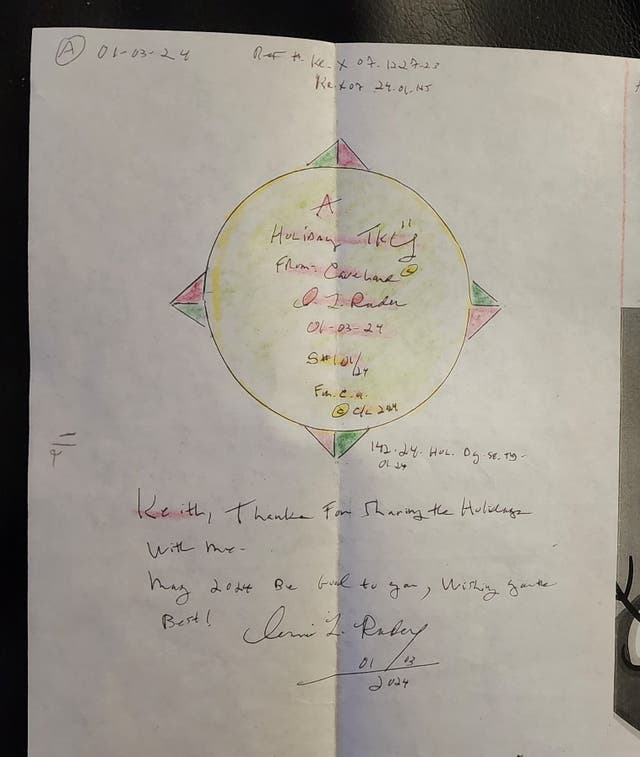 A 01-03-24
Ref #. Ke. X 07.1227.23
Ke X07 24.01.
A
Holiday TKG"
From:
D. L. Rader
01-03-24
S#1.01/24
For. C. a.
© C/L 24
142.24. Hol. Dg. Se.
01.24
Keith, Thanks For Sharing the Holidays
With me-
May 2024 Be Good to you, Wishing you the
Best!
Dennis L. Rader
01/03
2024